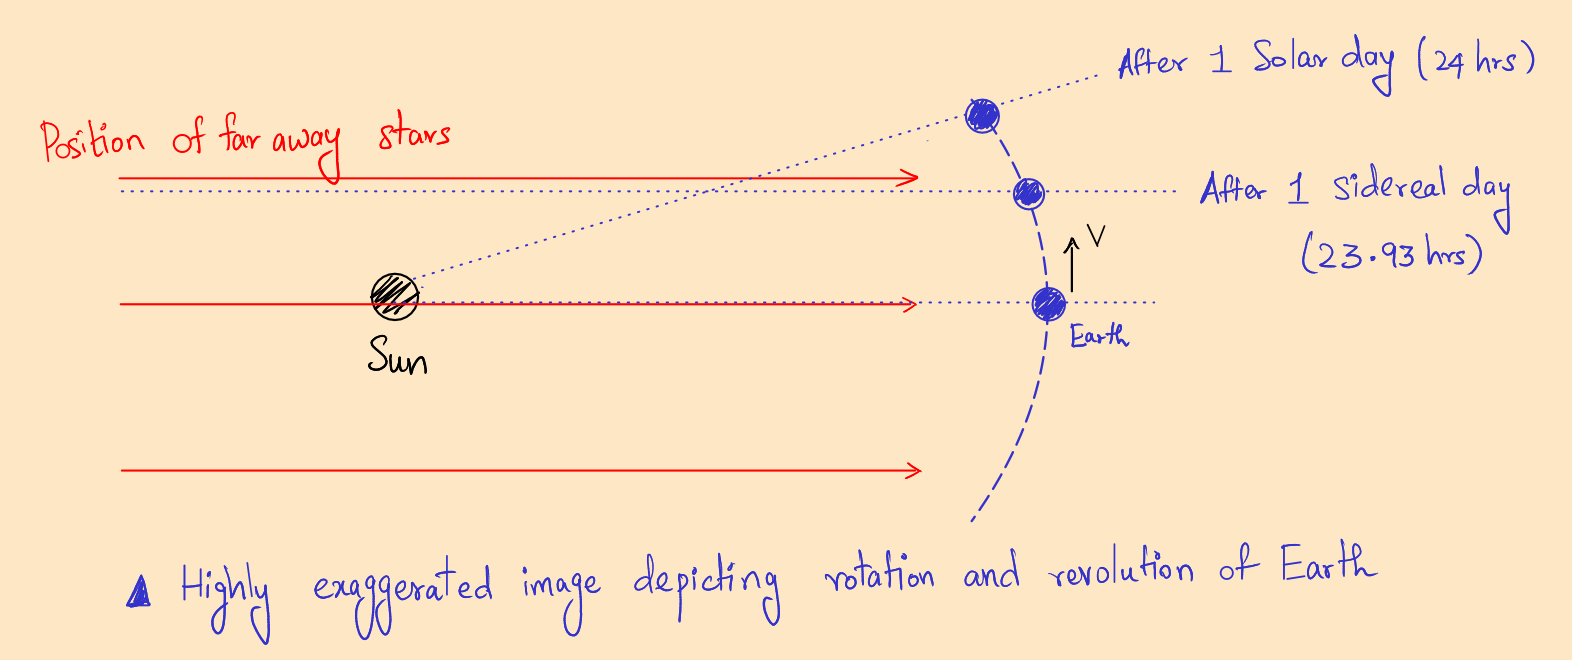 After 1 Solar day (24 hrs)
Position of far away stars
After 1 sidereal day
(23.93 hrs)
V
Earth
Sun
Highly exaggerated image depicting rotation and revolution of Earth